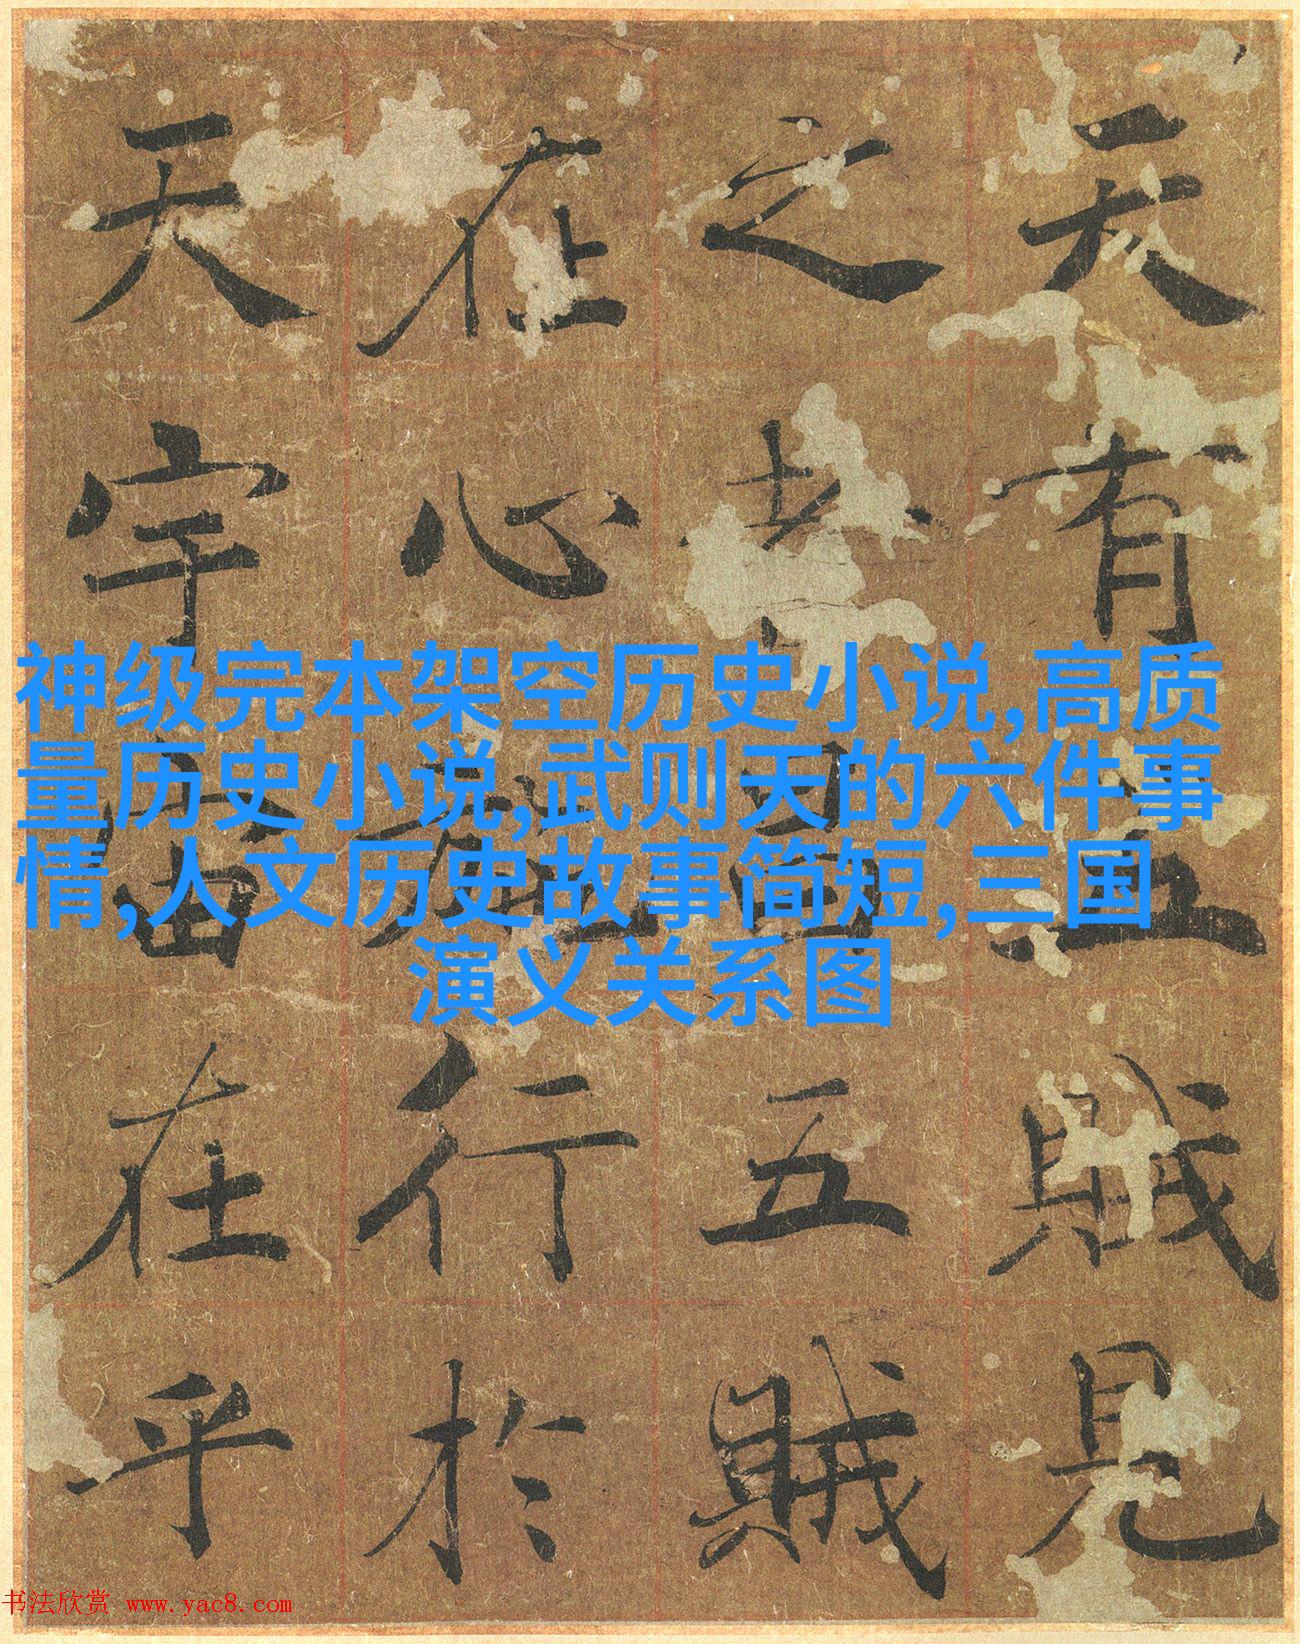 天有五賊見
之者昌五賊
在心施行於
天宇宙在乎
神级完本架空历史小说,高质
量历史小说,武则天的六件事
情,人文历史故事简短,三国
演义关系图
书法欣赏 www.yac8.com